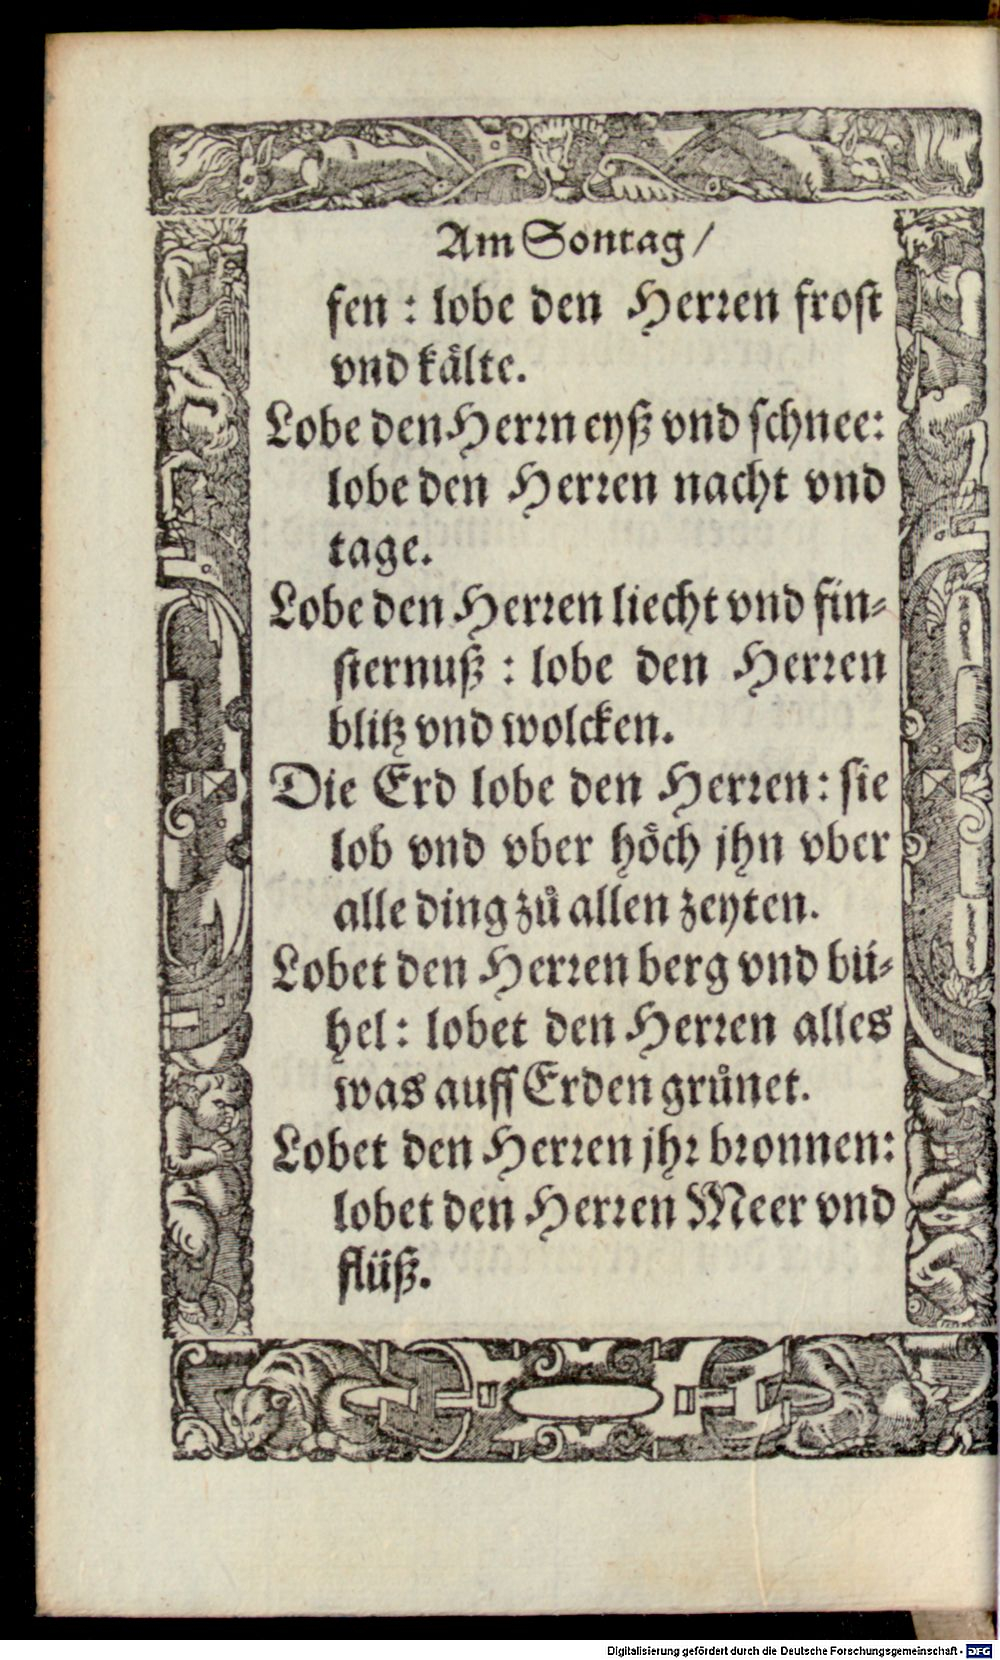 Am Sontag/
fen : lobe den Herren frost
vnd kaͤlte.
Lobe den Herrn eyß vnd schnee:
lobe den Herren nacht vnd
tage.
Lobe den Herren liecht vnd fin⸗
sternuß : lobe den Herren
blitz vnd wolcken.
Die Erd lobe den Herren: sie
lob vnd vber hoͤch jhn vber
alle ding zuͦ allen zeyten.
Lobet den Herren berg vnd bü⸗
hel: lobet den Herren alles
was auff Erden gruͤnet.
Lobet den Herren jhr bronnen:
lobet den Herren Meer vnd
flüß.
Digitalisierung gefördert durch die Deutsche Forschungsgemeinschaft - DFG